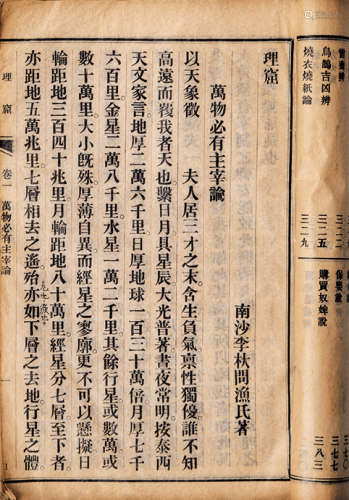 當興辨
鳥鵲吉凶辨
燒衣燒紙論
三二五
三二九
購買奴婢說
三七〇
三七七
三八三
理窟
萬物必有主宰論
南沙李杕問漁氏著
以天象徵 夫人居三才之末含生負氣禀性獨優誰不知
高遠而覆我者天也繫日月具星辰大光普著晝夜常明按泰西
天文家言地厚二萬六千里日厚地球一百三十萬倍月厚七千
六百里金星二萬八千里水星一萬二千里其餘行星或數萬或
數十萬里大小旣殊厚薄自異而經星之寥廓更不可以懸擬日
輪距地三百四十兆里月輪距地八十萬里經星分七層至下者
亦距地五萬兆里七層相去之遙殆亦如下層之去地行星之體
理窟
卷一 萬物必有主宰論
1